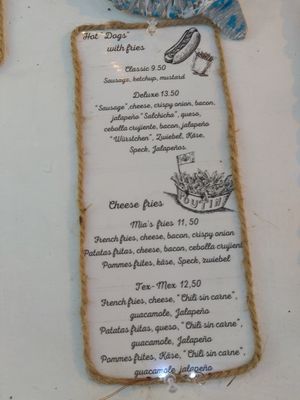 Hot "Dogs"
with fries
Classic 9.50
Sausage, ketchup, mustard
Deluxe 13.50
"Sausage", cheese, crispy onion, bacon,
jalapeño "Salchicha", queso,
cebolla crujiente, bacon, jalapeño
"Würstchen", Zwiebel, Käse,
Speck, Jalapeños.
POUTINE
Cheese fries
Mia's fries 11,50
French fries, cheese, bacon, crispy onion
Patatas fritas, cheese, bacon, cebolla crujient
Pommes frites, käse, Speck, zwiebel
Tex-Mex 12,50
French fries, cheese, "Chili sin carne",
guacamole, Jalapeño
Patatas fritas, queso, "Chili sin carne",
guacamole, Jalapeño
Pommes frites, Käse, "Chili sin carne",
guacamole, jalapeño